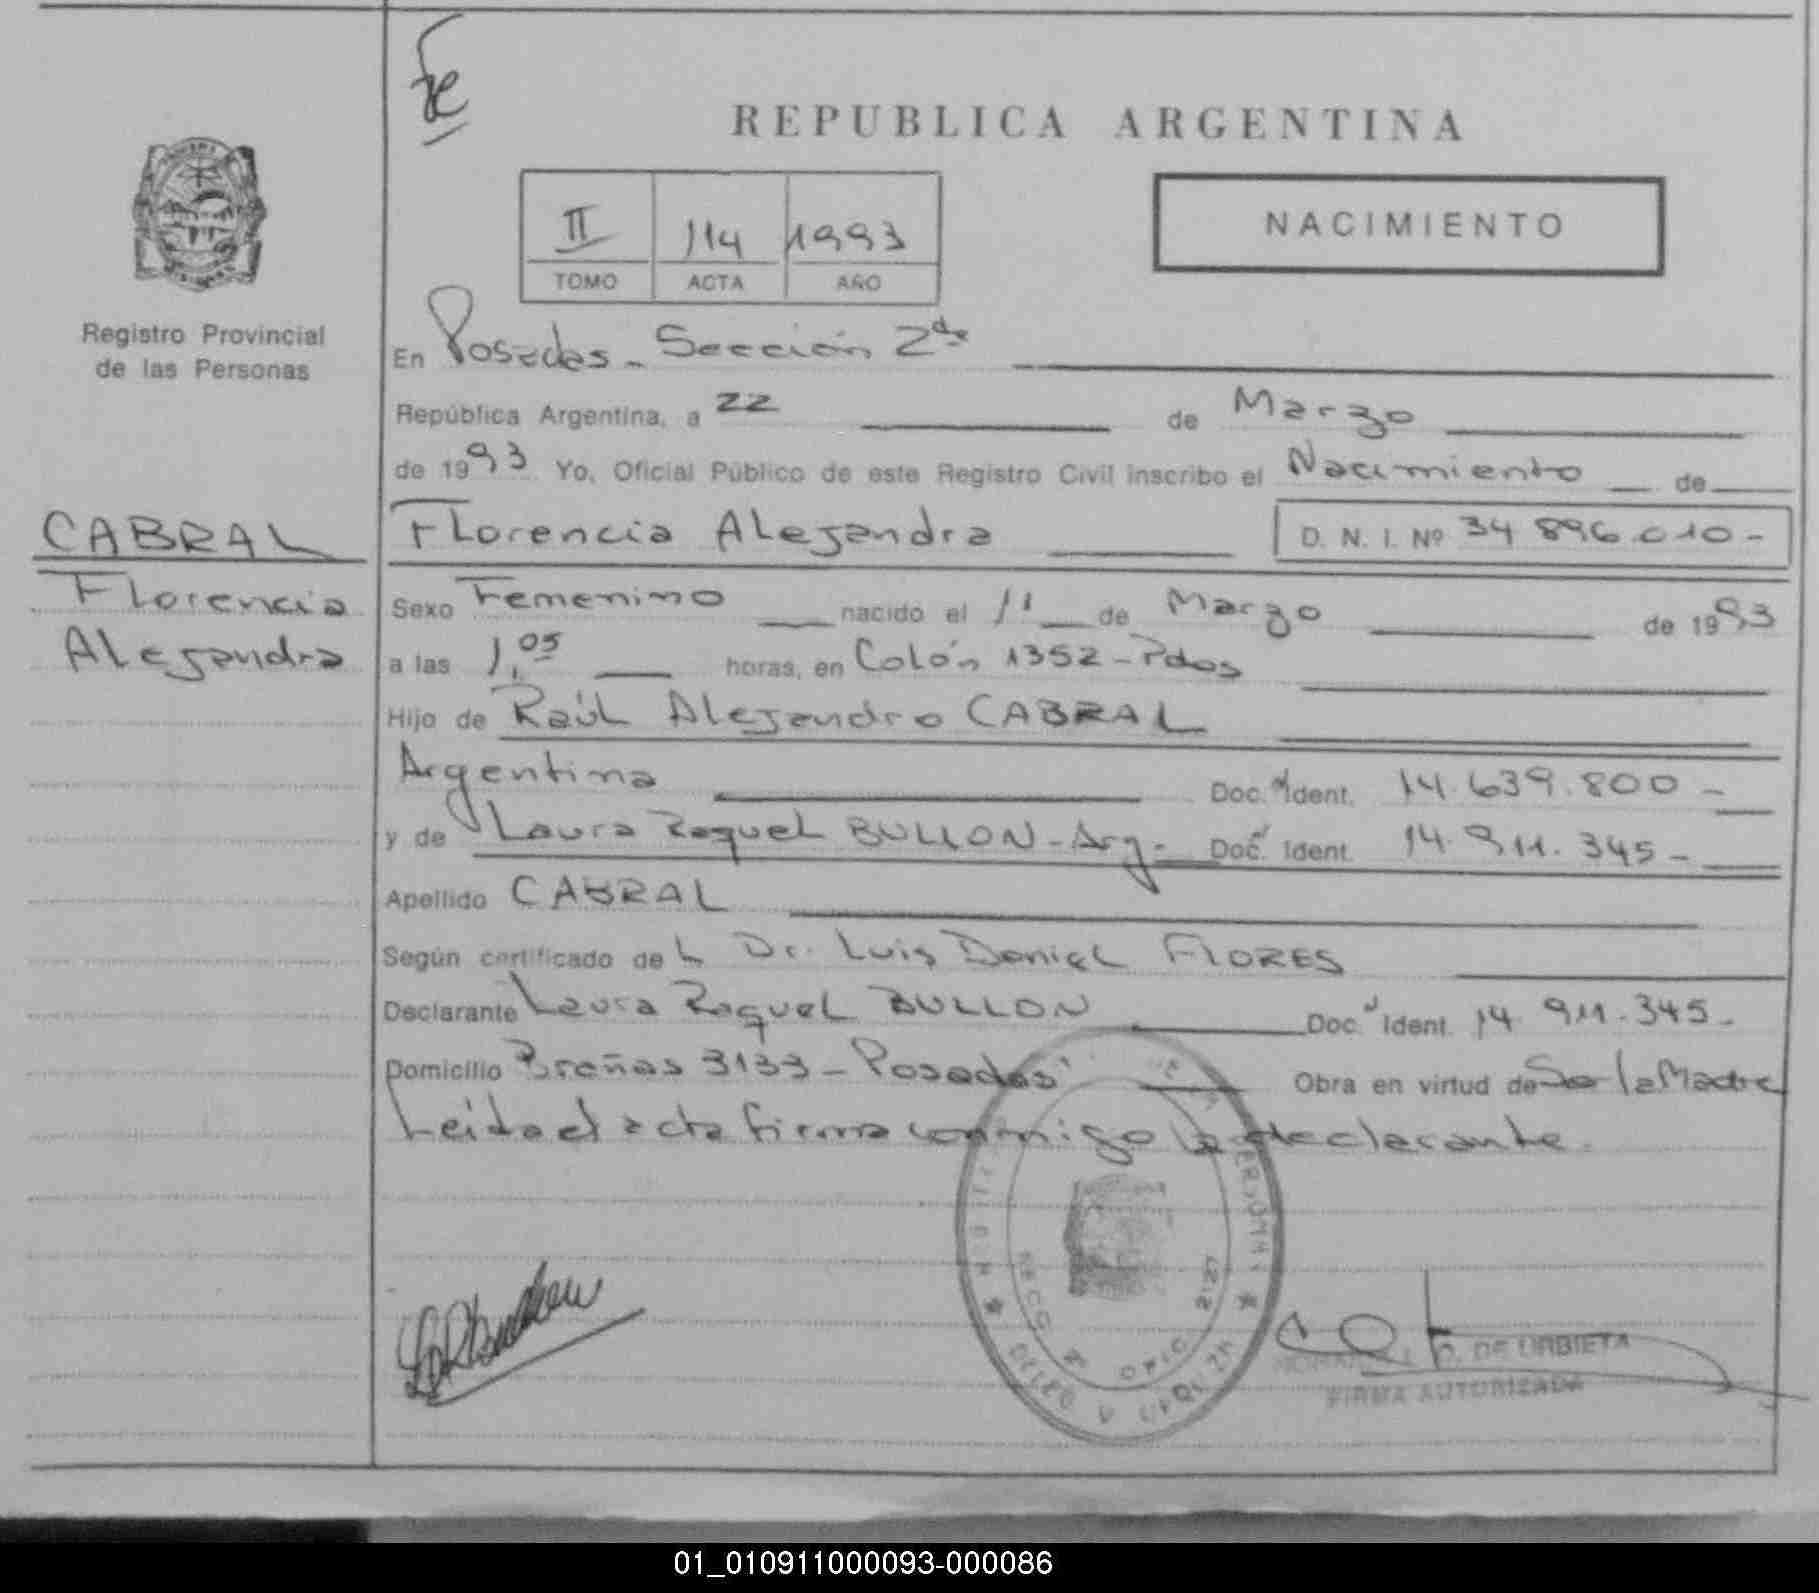 Fe
REPUBLICA ARGENTINA
II 114 1993
TOMO ACTA AÑO
NACIMIENTO
Registro Provincial
de las Personas
En Posadas - Sección 2da
República Argentina, a 22 de Marzo
de 1993 Yo, Oficial Público de este Registro Civil inscribo el Nacimiento de
CABRAL
Florencia
Alejandra
Florencia Alejandra D. N. I. Nº 34 896.010-
Sexo Femenino nacido el 11 de Marzo de 1993
a las 1,05 horas, en Colón 1352 - Pdas
Hijo de Raúl Alejandro CABRAL
Argentina Doc. Ident. 14.639.800 -
y de Laura Raquel BULLON - Arg. Doc. Ident. 14.911.345 -
Apellido CABRAL
Según certificado del Dr. Luis Daniel FLORES
Declarante Laura Raquel BULLON Doc. Ident. 14.911.345 -
Domicilio Breñas 3133 - Posadas Obra en virtud de Ser la Madre
Leída el acta firma conmigo la declarante.
D. DE URBIETA
FIRMA AUTORIZADA
01_010911000093-000086